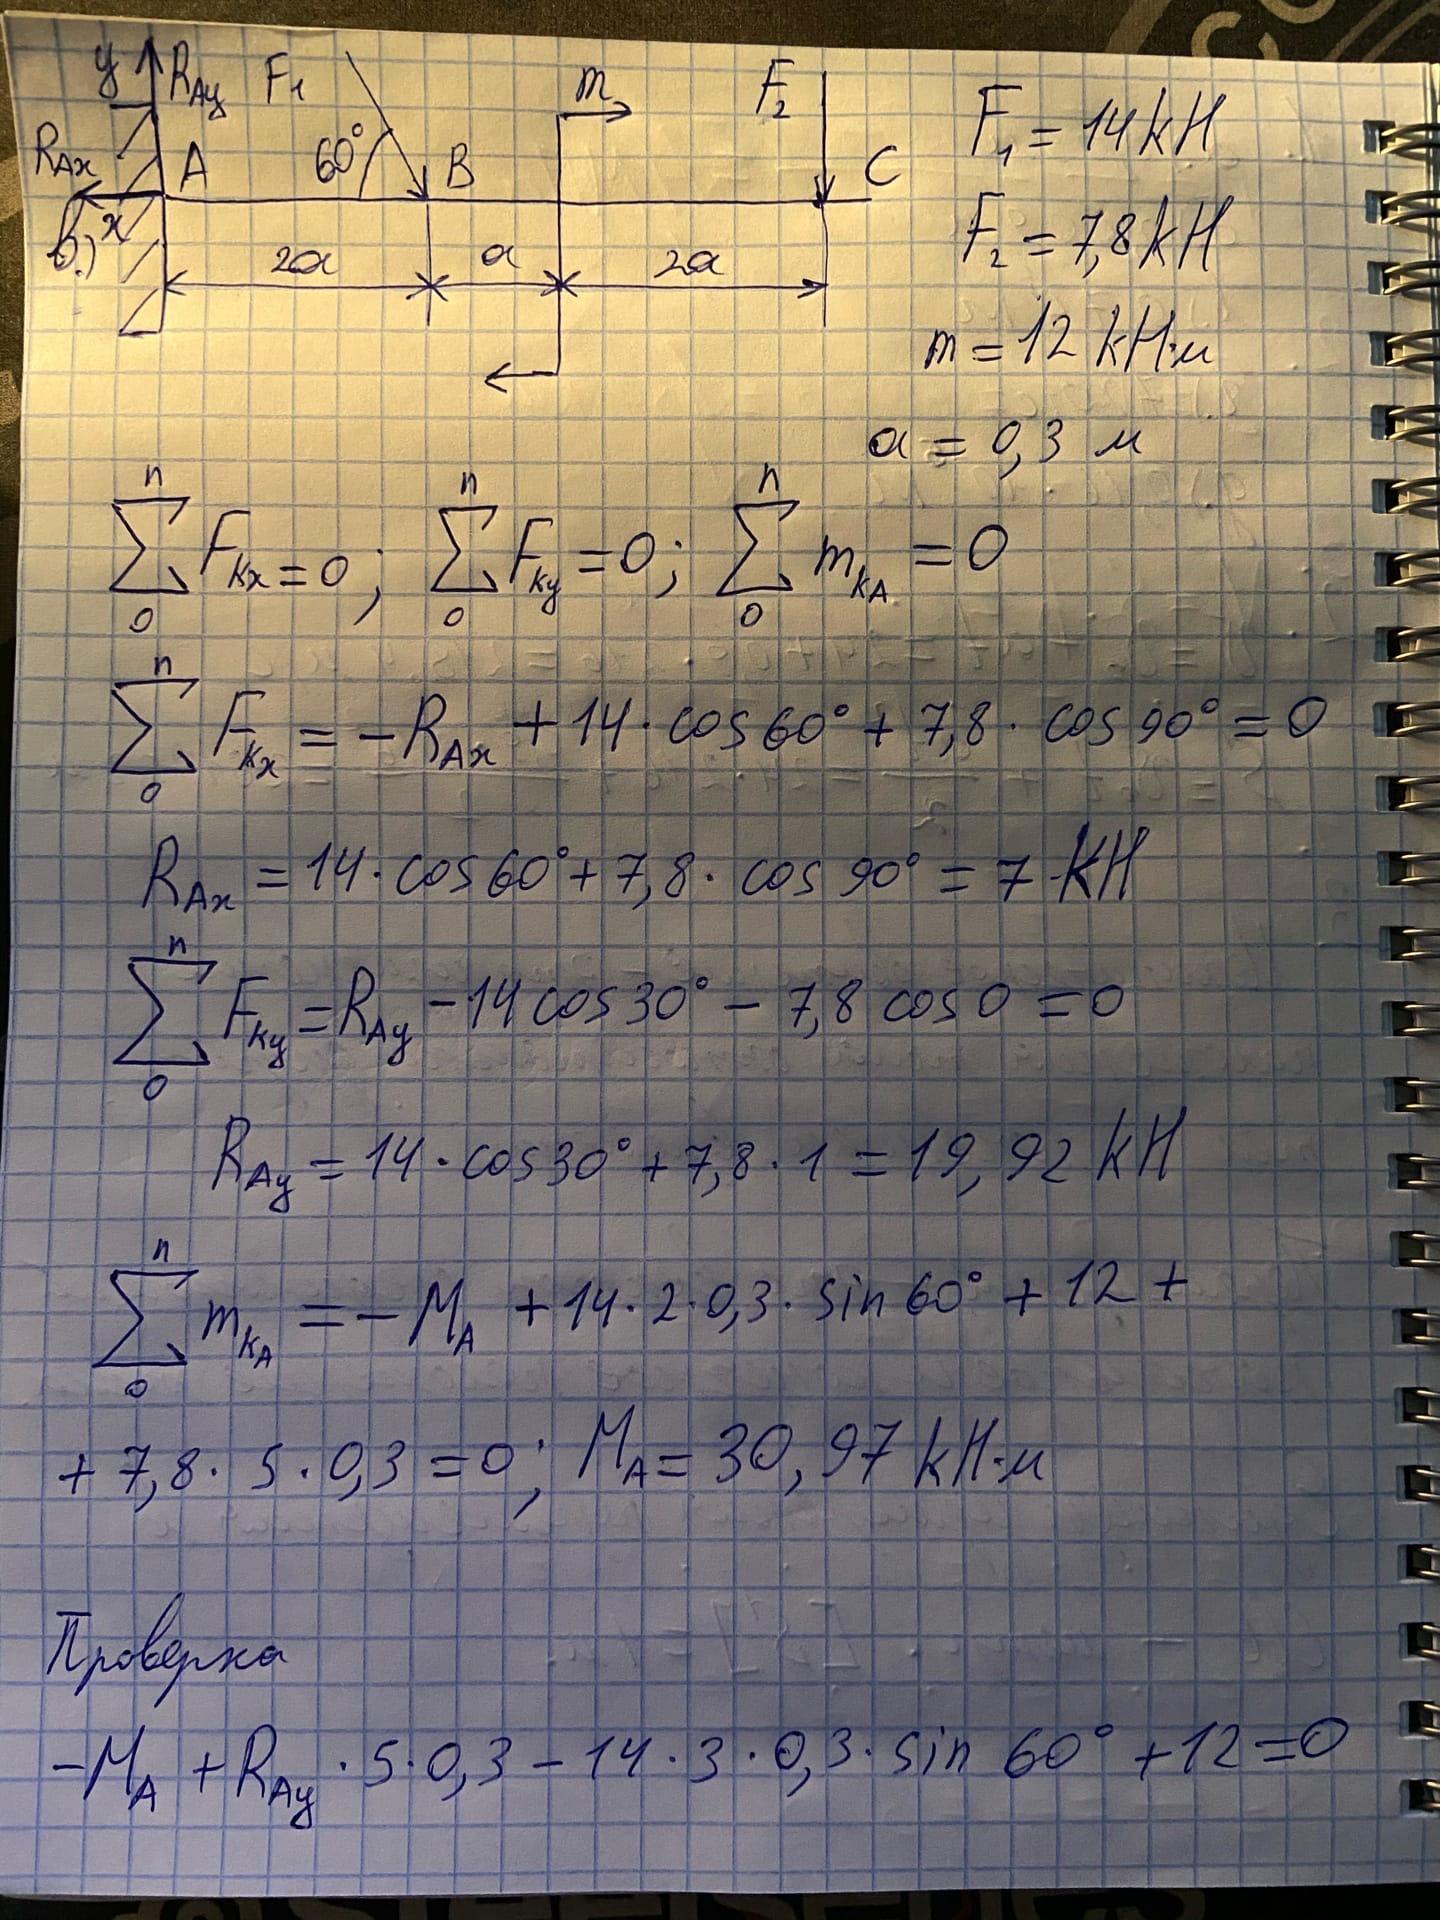 y R_Ay F₁ m F₂ F₁ = 14 kH
R_Ax A 60° B C
в.) x F₂ = 7,8 kH
2a a 2a
m = 12 kH·м
a = 0,3 м
n n n
∑ F_kx = 0; ∑ F_ky = 0; ∑ m_kA = 0
0 0 0
n
∑ F_kx = -R_Ax + 14 · cos 60° + 7,8 · cos 90° = 0
0
R_Ax = 14 · cos 60° + 7,8 · cos 90° = 7 kH
n
∑ F_ky = R_Ay - 14 cos 30° - 7,8 cos 0 = 0
0
R_Ay = 14 · cos 30° + 7,8 · 1 = 19,92 kH
n
∑ m_kA = -M_A + 14 · 2 · 0,3 · sin 60° + 12 +
0
+ 7,8 · 5 · 0,3 = 0; M_A = 30,97 kH·м
Проверка
-M_A + R_Ay · 5 · 0,3 - 14 · 3 · 0,3 · sin 60° + 12 = 0